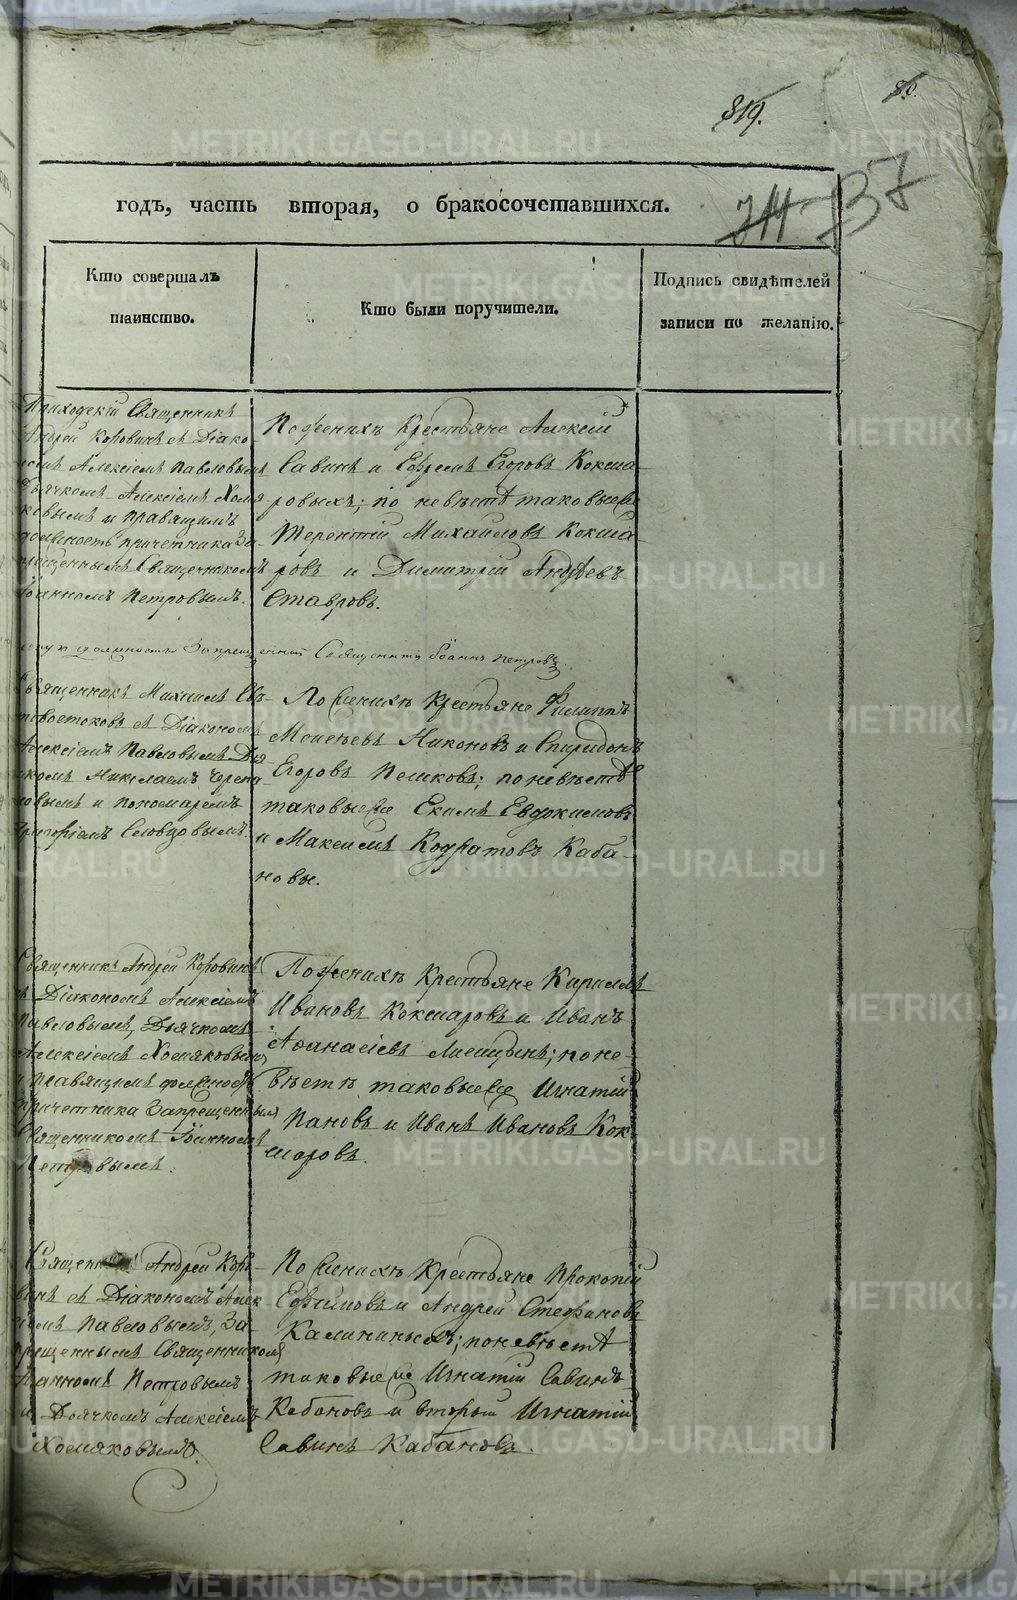 819.
80.
711 737
годъ, часть вторая, о бракосочетавшихся.
Кто совершалъ
таинство.
Кто были поручители.
Подпись свидѣтелей
записи по желанію.
Приходскій Священникъ
Андрей Коровинъ съ Діако
номъ Алексіемъ Павловымъ
Дьячкомъ Алексіемъ Хомя
ковымъ и правящимъ
должность причетника За-
прещеннымъ Священникомъ
Іоанномъ Петровымъ.
По женихѣ Крестьяне Алексій
Савинъ и Ефремъ Егоровъ Кокша-
ровыхъ; по невѣстѣ таковые же
Терентій Михайловъ Кокша-
ровъ и Димитрій Андреевъ
Ставровъ.
должность Запрещенный Священникъ Іоаннъ Петровъ.
Священникъ Михаилъ Свѣ-
товостоковъ съ Діакономъ
Алексіемъ Павловымъ Дья
чкомъ Николаемъ Черепа
новымъ и пономаремъ
Григоріемъ Словцовымъ.
По женихѣ Крестьяне Филиппъ
Моисѣевъ Никоновъ и Спиридонъ
Егоровъ Пешковъ; по невѣстѣ
таковые же Екимъ Евдокимовъ
и Максимъ Кодратовъ Каба-
новы.
Священникъ Андрей Коровинъ
съ Діакономъ Алексіемъ
Павловымъ, Дьячкомъ
Алексіемъ Хомяковымъ
и правящимъ должность
причетника Запрещеннымъ
Священникомъ Іоанномъ
Петровымъ.
По женихѣ Крестьяне Кириллъ
Ивановъ Кокшаровъ и Иванъ
Аѳанасіевъ Лисицынъ; по не-
вѣстѣ таковые же Игнатій
Пановъ и Иванъ Ивановъ Кок-
шаровъ.
Священникъ Андрей Коро-
винъ съ Діакономъ Алек
сіемъ Павловымъ, За-
прещеннымъ Священникомъ
Іоанномъ Петровымъ
и Дьячкомъ Алексіемъ
Хомяковымъ.
По женихѣ Крестьяне Прокопій
Ефимовъ и Андрей Стефановъ
Калининыхъ; по невѣстѣ
таковые же Игнатій Савинъ
Кабановъ и вторый Игнатій
Савинъ Кабановъ.
METRIKI.GASO-URAL.RU